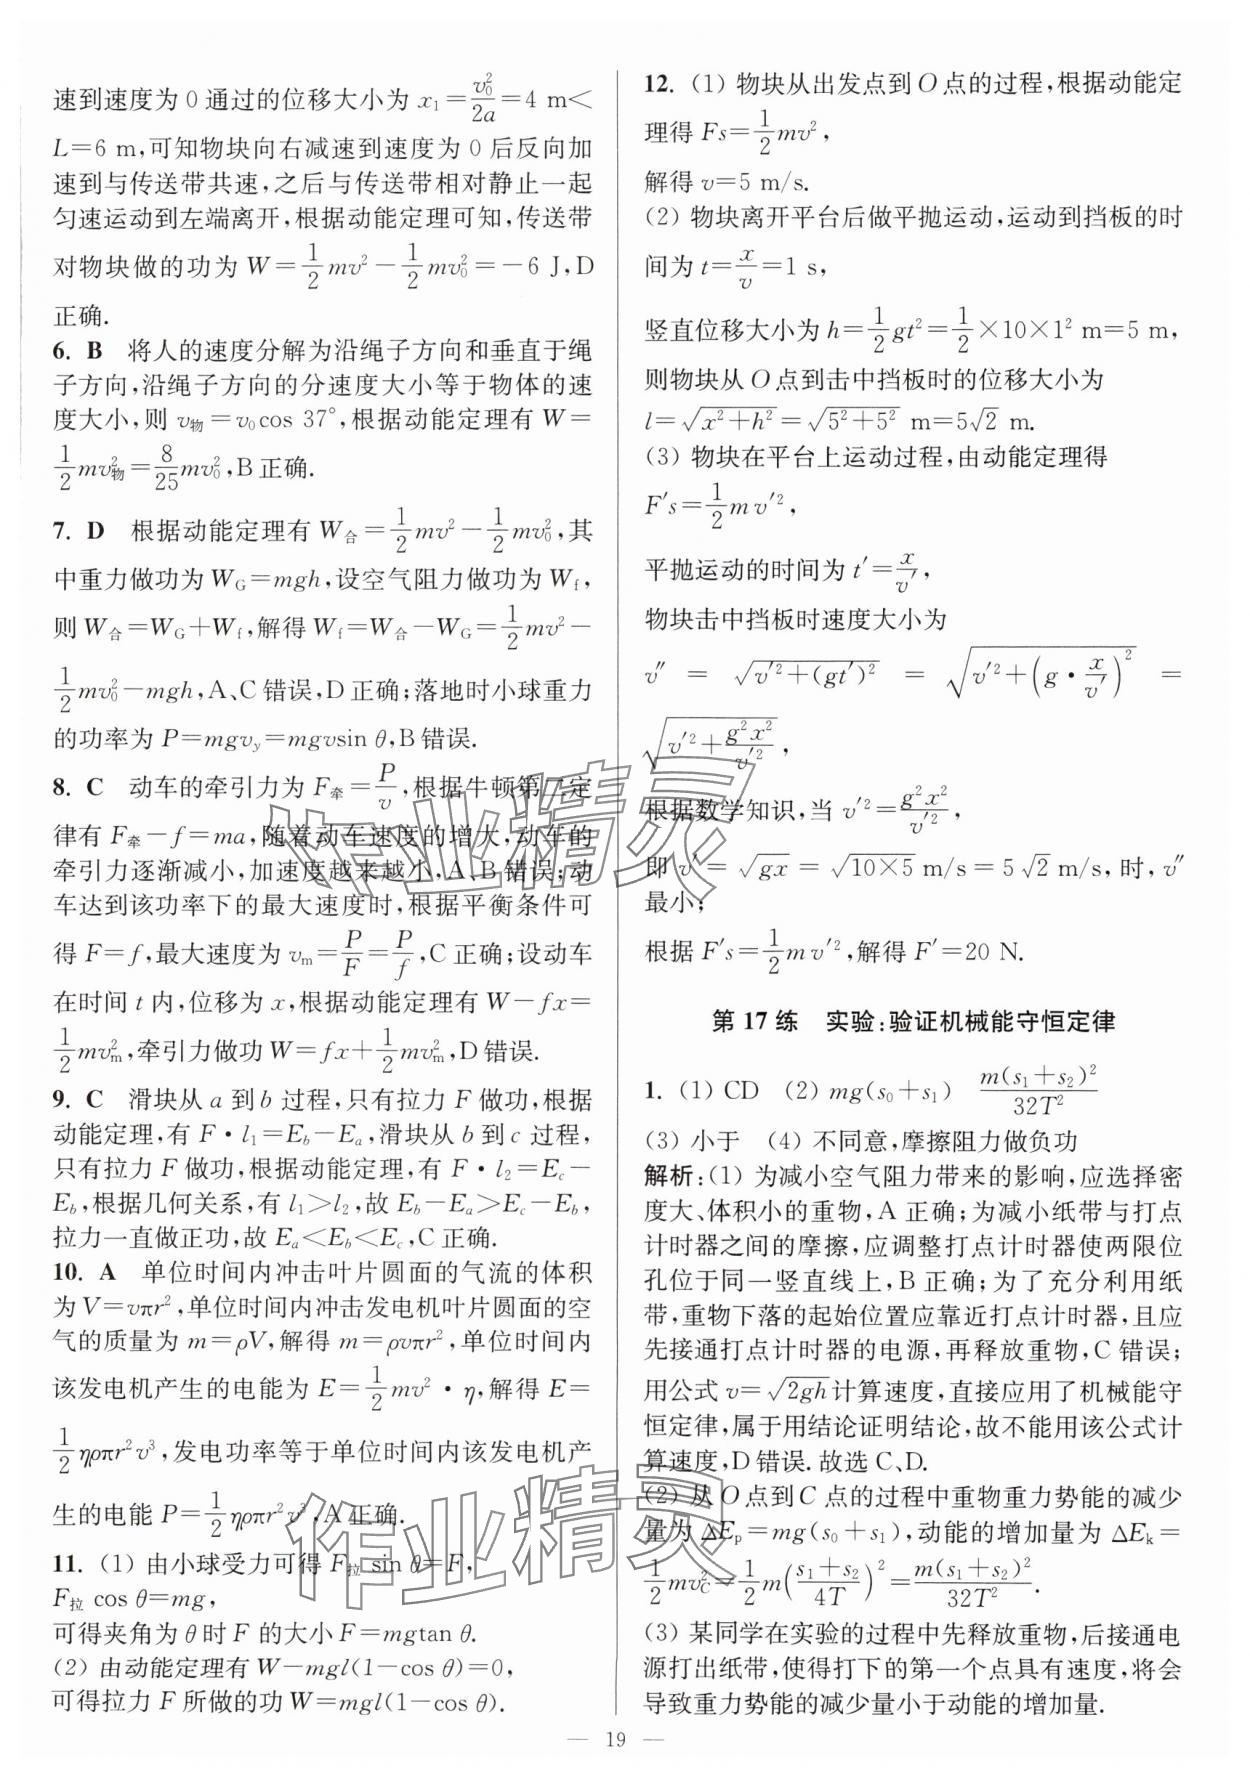 速到速度为 0 通过的位移大小为 x₁=v₀²/2a=4 m<
L=6 m,可知物块向右减速到速度为 0 后反向加
速到与传送带共速,之后与传送带相对静止一起
匀速运动到左端离开,根据动能定理可知,传送带
对物块做的功为 W=1/2mv²-1/2mv₀²=-6 J,D
正确.
6. B 将人的速度分解为沿绳子方向和垂直于绳
子方向,沿绳子方向的分速度大小等于物体的速
度大小,则 v物=v₀cos 37°,根据动能定理有 W=
1/2mv物²=8/25mv₀²,B 正确.
7. D 根据动能定理有 W合=1/2mv²-1/2mv₀²,其
中重力做功为 W_G=mgh,设空气阻力做功为 W_f,
则 W合=W_G+W_f,解得 W_f=W合-W_G=1/2mv²-
1/2mv₀²-mgh,A、C 错误,D 正确;落地时小球重力
的功率为 P=mgv_y=mgvsin θ,B 错误.
8. C 动车的牵引力为 F牵=P/v,根据牛顿第二定
律有 F牵-f=ma,随着动车速度的增大,动车的
牵引力逐渐减小,加速度越来越小,A、B 错误;动
车达到该功率下的最大速度时,根据平衡条件可
得 F=f,最大速度为 v_m=P/F=P/f,C 正确;设动车
在时间 t 内,位移为 x,根据动能定理有 W-fx=
1/2mv_m²,牵引力做功 W=fx+1/2mv_m²,D 错误.
9. C 滑块从 a 到 b 过程,只有拉力 F 做功,根据
动能定理,有 F·l₁=E_b-E_a,滑块从 b 到 c 过程,
只有拉力 F 做功,根据动能定理,有 F·l₂=E_c-
E_b,根据几何关系,有 l₁>l₂,故 E_b-E_a>E_c-E_b,
拉力一直做正功,故 E_a<E_b<E_c,C 正确.
10. A 单位时间内冲击叶片圆面的气流的体积
为 V=vπr²,单位时间内冲击发电机叶片圆面的空
气的质量为 m=ρV,解得 m=ρvπr²,单位时间内
该发电机产生的电能为 E=1/2mv²·η,解得 E=
1/2ηρπr²v³,发电功率等于单位时间内该发电机产
生的电能 P=1/2ηρπr²v³,A 正确.
11. (1) 由小球受力可得 F拉 sin θ=F,
F拉 cos θ=mg,
可得夹角为 θ 时 F 的大小 F=mgtan θ.
(2) 由动能定理有 W-mgl(1-cos θ)=0,
可得拉力 F 所做的功 W=mgl(1-cos θ).
12. (1) 物块从出发点到 O 点的过程,根据动能定
理得 Fs=1/2mv²,
解得 v=5 m/s.
(2) 物块离开平台后做平抛运动,运动到挡板的时
间为 t=x/v=1 s,
竖直位移大小为 h=1/2gt²=1/2×10×1² m=5 m,
则物块从 O 点到击中挡板时的位移大小为
l=√(x²+h²)=√(5²+5²) m=5√2 m.
(3) 物块在平台上运动过程,由动能定理得
F's=1/2mv'²,
平抛运动的时间为 t'=x/v',
物块击中挡板时速度大小为
v''=√(v'²+(gt')²)=√(v'²+(g·x/v')²)=
√(v'²+g²x²/v'²),
根据数学知识,当 v'²=g²x²/v'²,
即 v'=√(gx)=√(10×5) m/s=5√2 m/s,时,v''
最小;
根据 F's=1/2mv'²,解得 F'=20 N.
第 17 练 实验:验证机械能守恒定律
1. (1) CD (2) mg(s₀+s₁) m(s₁+s₂)²/32T²
(3) 小于 (4) 不同意,摩擦阻力做负功
解析:(1) 为减小空气阻力带来的影响,应选择密
度大、体积小的重物,A 正确;为减小纸带与打点
计时器之间的摩擦,应调整打点计时器使两限位
孔位于同一竖直线上,B 正确;为了充分利用纸
带,重物下落的起始位置应靠近打点计时器,且应
先接通打点计时器的电源,再释放重物,C 错误;
用公式 v=√(2gh)计算速度,直接应用了机械能守
恒定律,属于用结论证明结论,故不能用该公式计
算速度,D 错误.故选 C、D.
(2) 从 O 点到 C 点的过程中重物重力势能的减少
量为 ΔE_p=mg(s₀+s₁),动能的增加量为 ΔE_k=
1/2mv_C²=1/2m((s₁+s₂)/4T)²=m(s₁+s₂)²/32T².
(3) 某同学在实验的过程中先释放重物,后接通电
源打出纸带,使得打下的第一个点具有速度,将会
导致重力势能的减少量小于动能的增加量.
— 19 —
作业精灵
作业精灵